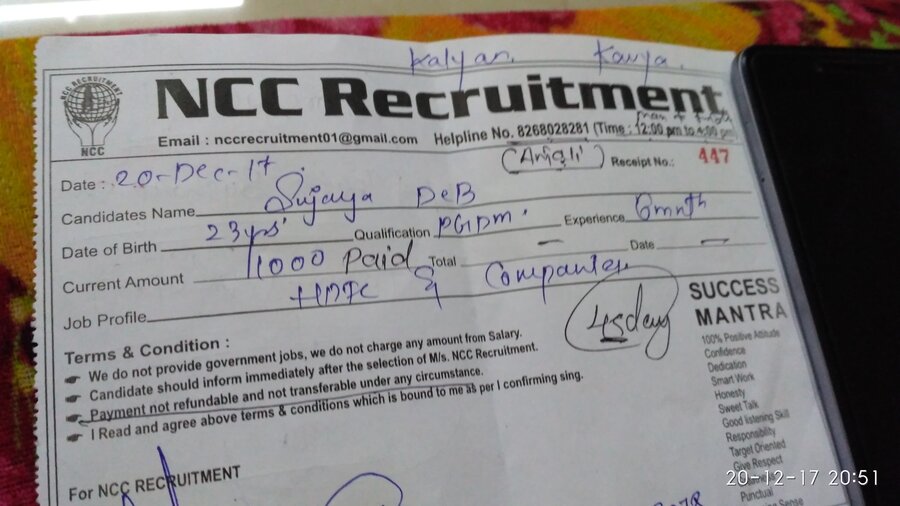 Kalyan. Kavya.
NCC RECRUITMENT
NCC
NCC Recruitment
Email : nccrecruitment01@gmail.com Helpline No. 8268028281 (Time : 12:00 pm to 4:00 pm)
(Anjali) Receipt No.: 447
Date : 20-Dec-17.
Candidates Name Sujaya DeB
Date of Birth 23yrs' Qualification PGDM' Experience 6mnth
Current Amount 1000 Paid Total — Date —
Job Profile HDFC & Companies
45day
Terms & Condition :
We do not provide government jobs, we do not charge any amount from Salary.
Candidate should inform immediately after the selection of M/s. NCC Recruitment.
Payment not refundable and not transferable under any circumstance.
I Read and agree above terms & conditions which is bound to me as per I confirming sing.
For NCC RECRUITMENT
SUCCESS
MANTRA
100% Positive Attitude
Confidence
Dedication
Smart Work
Honesty
Sweet Talk
Good listening Skill
Responsibility
Target Oriented
Give Respect
Punctual
Sense
20-12-17 20:51